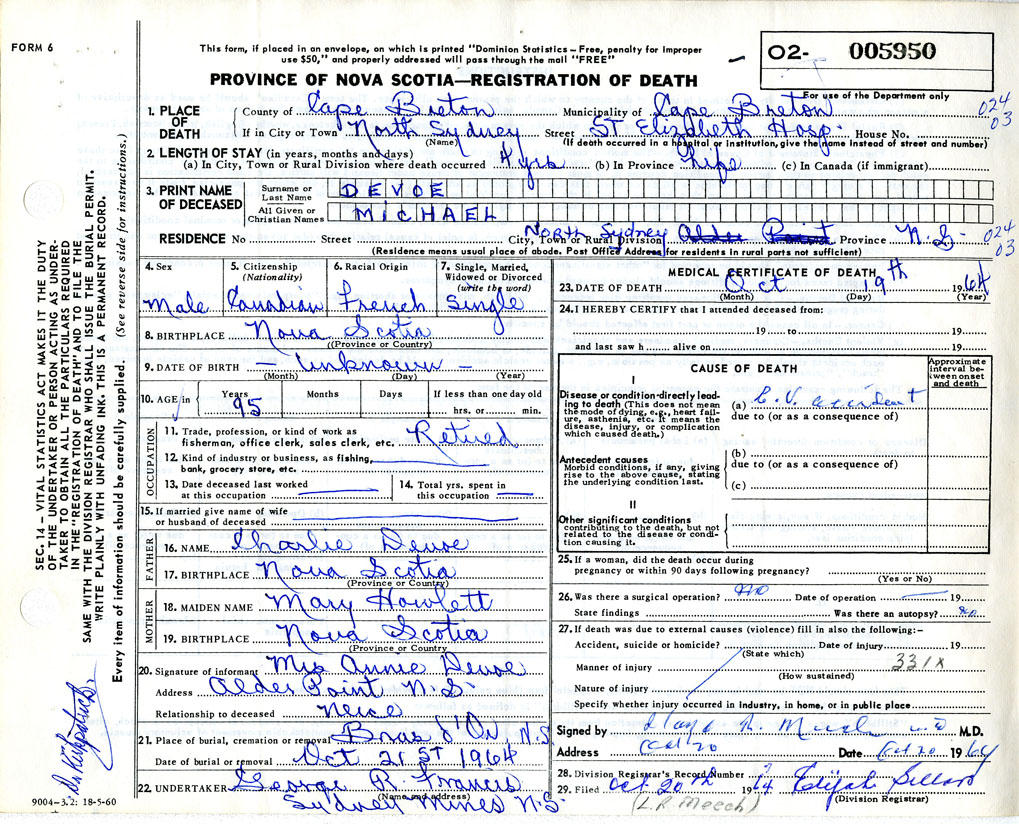 FORM 6
This form, if placed in an envelope, on which is printed "Dominion Statistics – Free, penalty for improper
use $50," and properly addressed will pass through the mail "FREE"
PROVINCE OF NOVA SCOTIA—REGISTRATION OF DEATH
O2- 005950
For use of the Department only
024
03
1. PLACE OF DEATH
County of Cape Breton Municipality of Cape Breton
If in City or Town North Sydney Street St Elizabeth Hosp. House No.
(Name) (If death occurred in a hospital or institution, give the name instead of street and number)
2. LENGTH OF STAY (in years, months and days)
(a) In City, Town or Rural Division where death occurred 4 yrs (b) In Province Life (c) In Canada (if immigrant)
3. PRINT NAME OF DECEASED
Surname or Last Name DEVOE
All Given or Christian Names MICHAEL
RESIDENCE No Street City, Town or Rural Division North Sydney Alder Point Province N.S. 024
03
(Residence means usual place of abode. Post Office Address for residents in rural parts not sufficient)
4. Sex Male
5. Citizenship (Nationality) Canadian
6. Racial Origin French
7. Single, Married, Widowed or Divorced (write the word) Single
8. BIRTHPLACE Nova Scotia
((Province or Country)
9. DATE OF BIRTH — Unknown —
(Month) (Day) (Year)
10. AGE in Years 95 Months Days If less than one day old hrs. or min.
OCCUPATION
11. Trade, profession, or kind of work as fisherman, office clerk, sales clerk, etc. Retired
12. Kind of industry or business, as fishing, bank, grocery store, etc.
13. Date deceased last worked at this occupation
14. Total yrs. spent in this occupation
15. If married give name of wife or husband of deceased
FATHER
16. NAME Charlie Devoe
17. BIRTHPLACE Nova Scotia
(Province or Country)
MOTHER
18. MAIDEN NAME Mary Howlett
19. BIRTHPLACE Nova Scotia
(Province or Country
20. Signature of informant Annie Devoe
Address Alder Point N.S.
Relationship to deceased Neice
21. Place of burial, cremation or removal Bras d'Or N.S.
Date of burial or removal Oct 21st 1964
22. UNDERTAKER George R. Francis
(Name and address)
Sydney Mines N.S.
MEDICAL CERTIFICATE OF DEATH
23. DATE OF DEATH Oct 19th 1964
(Month) (Day) (Year)
24. I HEREBY CERTIFY that I attended deceased from:
19 to 19
and last saw h alive on 19
CAUSE OF DEATH
Approximate interval between onset and death
I
Disease or condition directly leading to death (This does not mean the mode of dying, e.g., heart failure, asthenia, etc. It means the disease, injury, or complication which caused death.)
(a) C.V. accident
due to (or as a consequence of)
Antecedent causes
Morbid conditions, if any, giving rise to the above cause, stating the underlying condition last.
(b)
due to (or as a consequence of)
(c)
II
Other significant conditions
contributing to the death, but not related to the disease or condition causing it.
25. If a woman, did the death occur during pregnancy or within 90 days following pregnancy?
(Yes or No)
26. Was there a surgical operation? no Date of operation 19
State findings Was there an autopsy? no
27. If death was due to external causes (violence) fill in also the following:–
Accident, suicide or homicide? Date of injury 19
(State which)
Manner of injury 331X
(How sustained)
Nature of injury
Specify whether injury occurred in Industry, in home, or in public place
Signed by M.D.
Address Date Oct 20 1964
28. Division Registrar's Record Number
29. Filed Oct 20th 1964 Elijah
(Division Registrar)
(L.R. Meech)
SEC. 14 – VITAL STATISTICS ACT MAKES IT THE DUTY
OF THE UNDERTAKER OR PERSON ACTING AS UNDER-
TAKER TO OBTAIN ALL THE PARTICULARS REQUIRED
IN THE "REGISTRATION OF DEATH" AND TO FILE THE
SAME WITH THE DIVISION REGISTRAR WHO SHALL ISSUE THE BURIAL PERMIT.
WRITE PLAINLY WITH UNFADING INK. THIS IS A PERMANENT RECORD.
Every item of information should be carefully supplied. (See reverse side for instructions.)
9004-3.2: 18-5-60